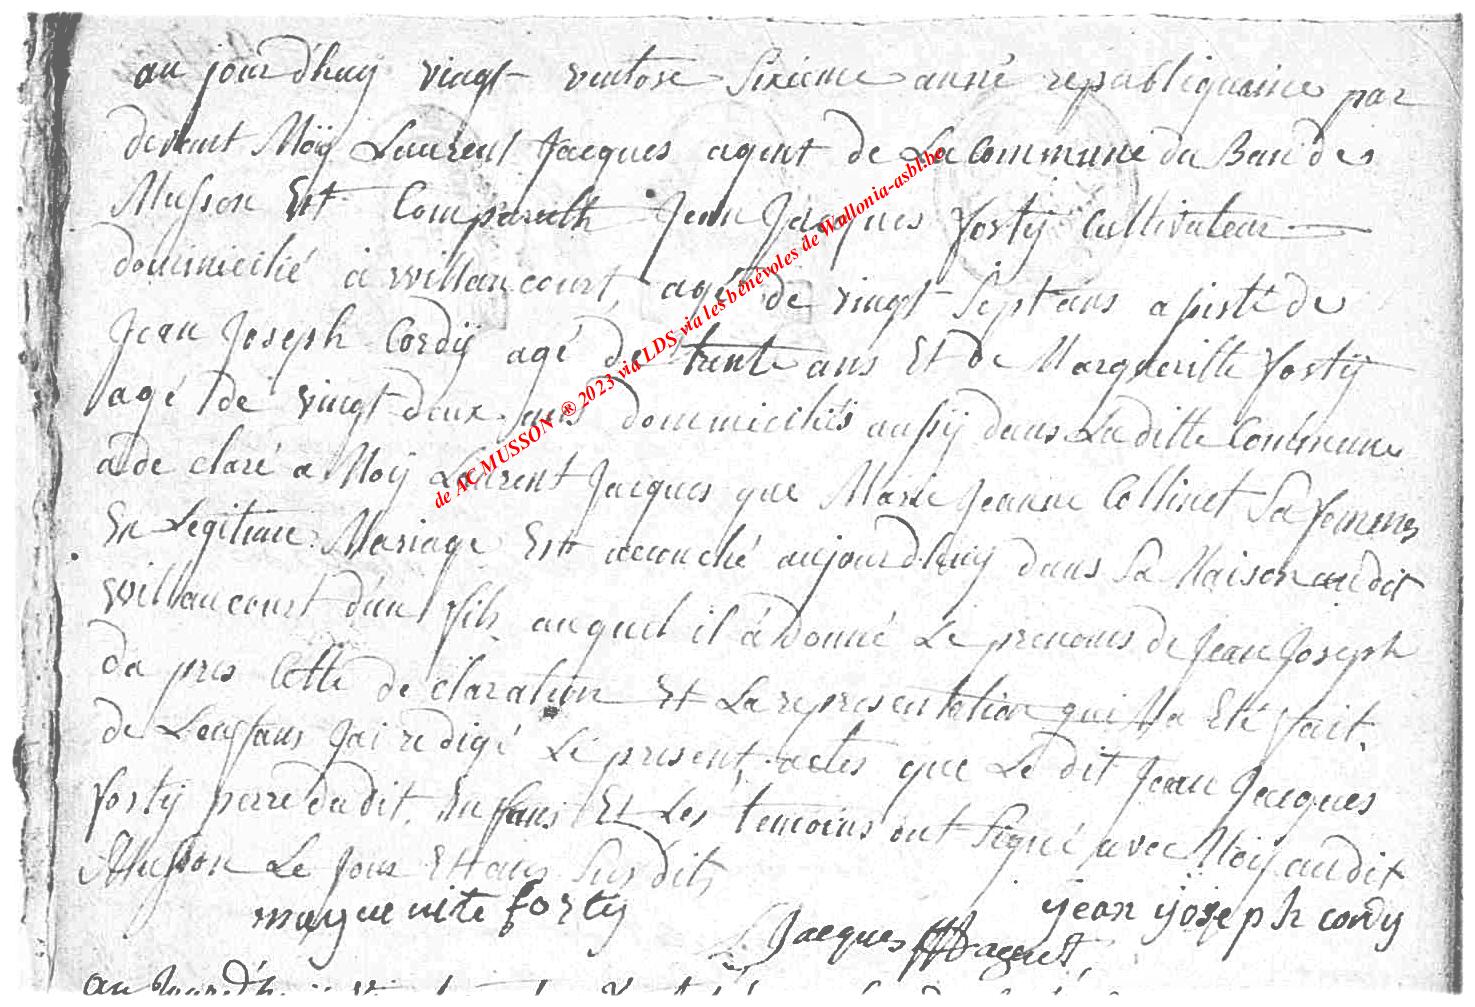 au jourdhuy vingt ventose Sixieme année republiquaine par
devant Moÿ Laurent Jacques agent de La Commune du Ban de
Musson Est Comparuth Jean Jacques forty Cultivateur
domicilié a willancourt, agé de vingt Sept ans apisté de
Jean Joseph Cordÿ agé de trente ans Et de Margueritte fortÿ
agé de vingt deux ans domiciliés aussÿ dans La ditte Commune
a de claré a Moÿ Laurent Jacques que Marie Jeanne Collinet Sa femme
En Legitime Mariage Est acouché aujourdhuy dans Sa Maison audit
willancourt d'un fils auquel il a donné Le prenoms de Jean Joseph
da pres Cette de claration Et La representation qui Ma Eté fait
de Lenffans Jai redigé Le present actes que Le dit Jean Jacques
fortÿ perre dudit Enffans Et Les temoins ont Signé avec Moÿ audit
Musson Le Jour Et ans Susdits
marguerite forty
jean yjoseph cordy
Jacques
au Jourdh
de AC MUSSON ® 2023 via LDS via les bénévoles de Wallonia-asbl.be